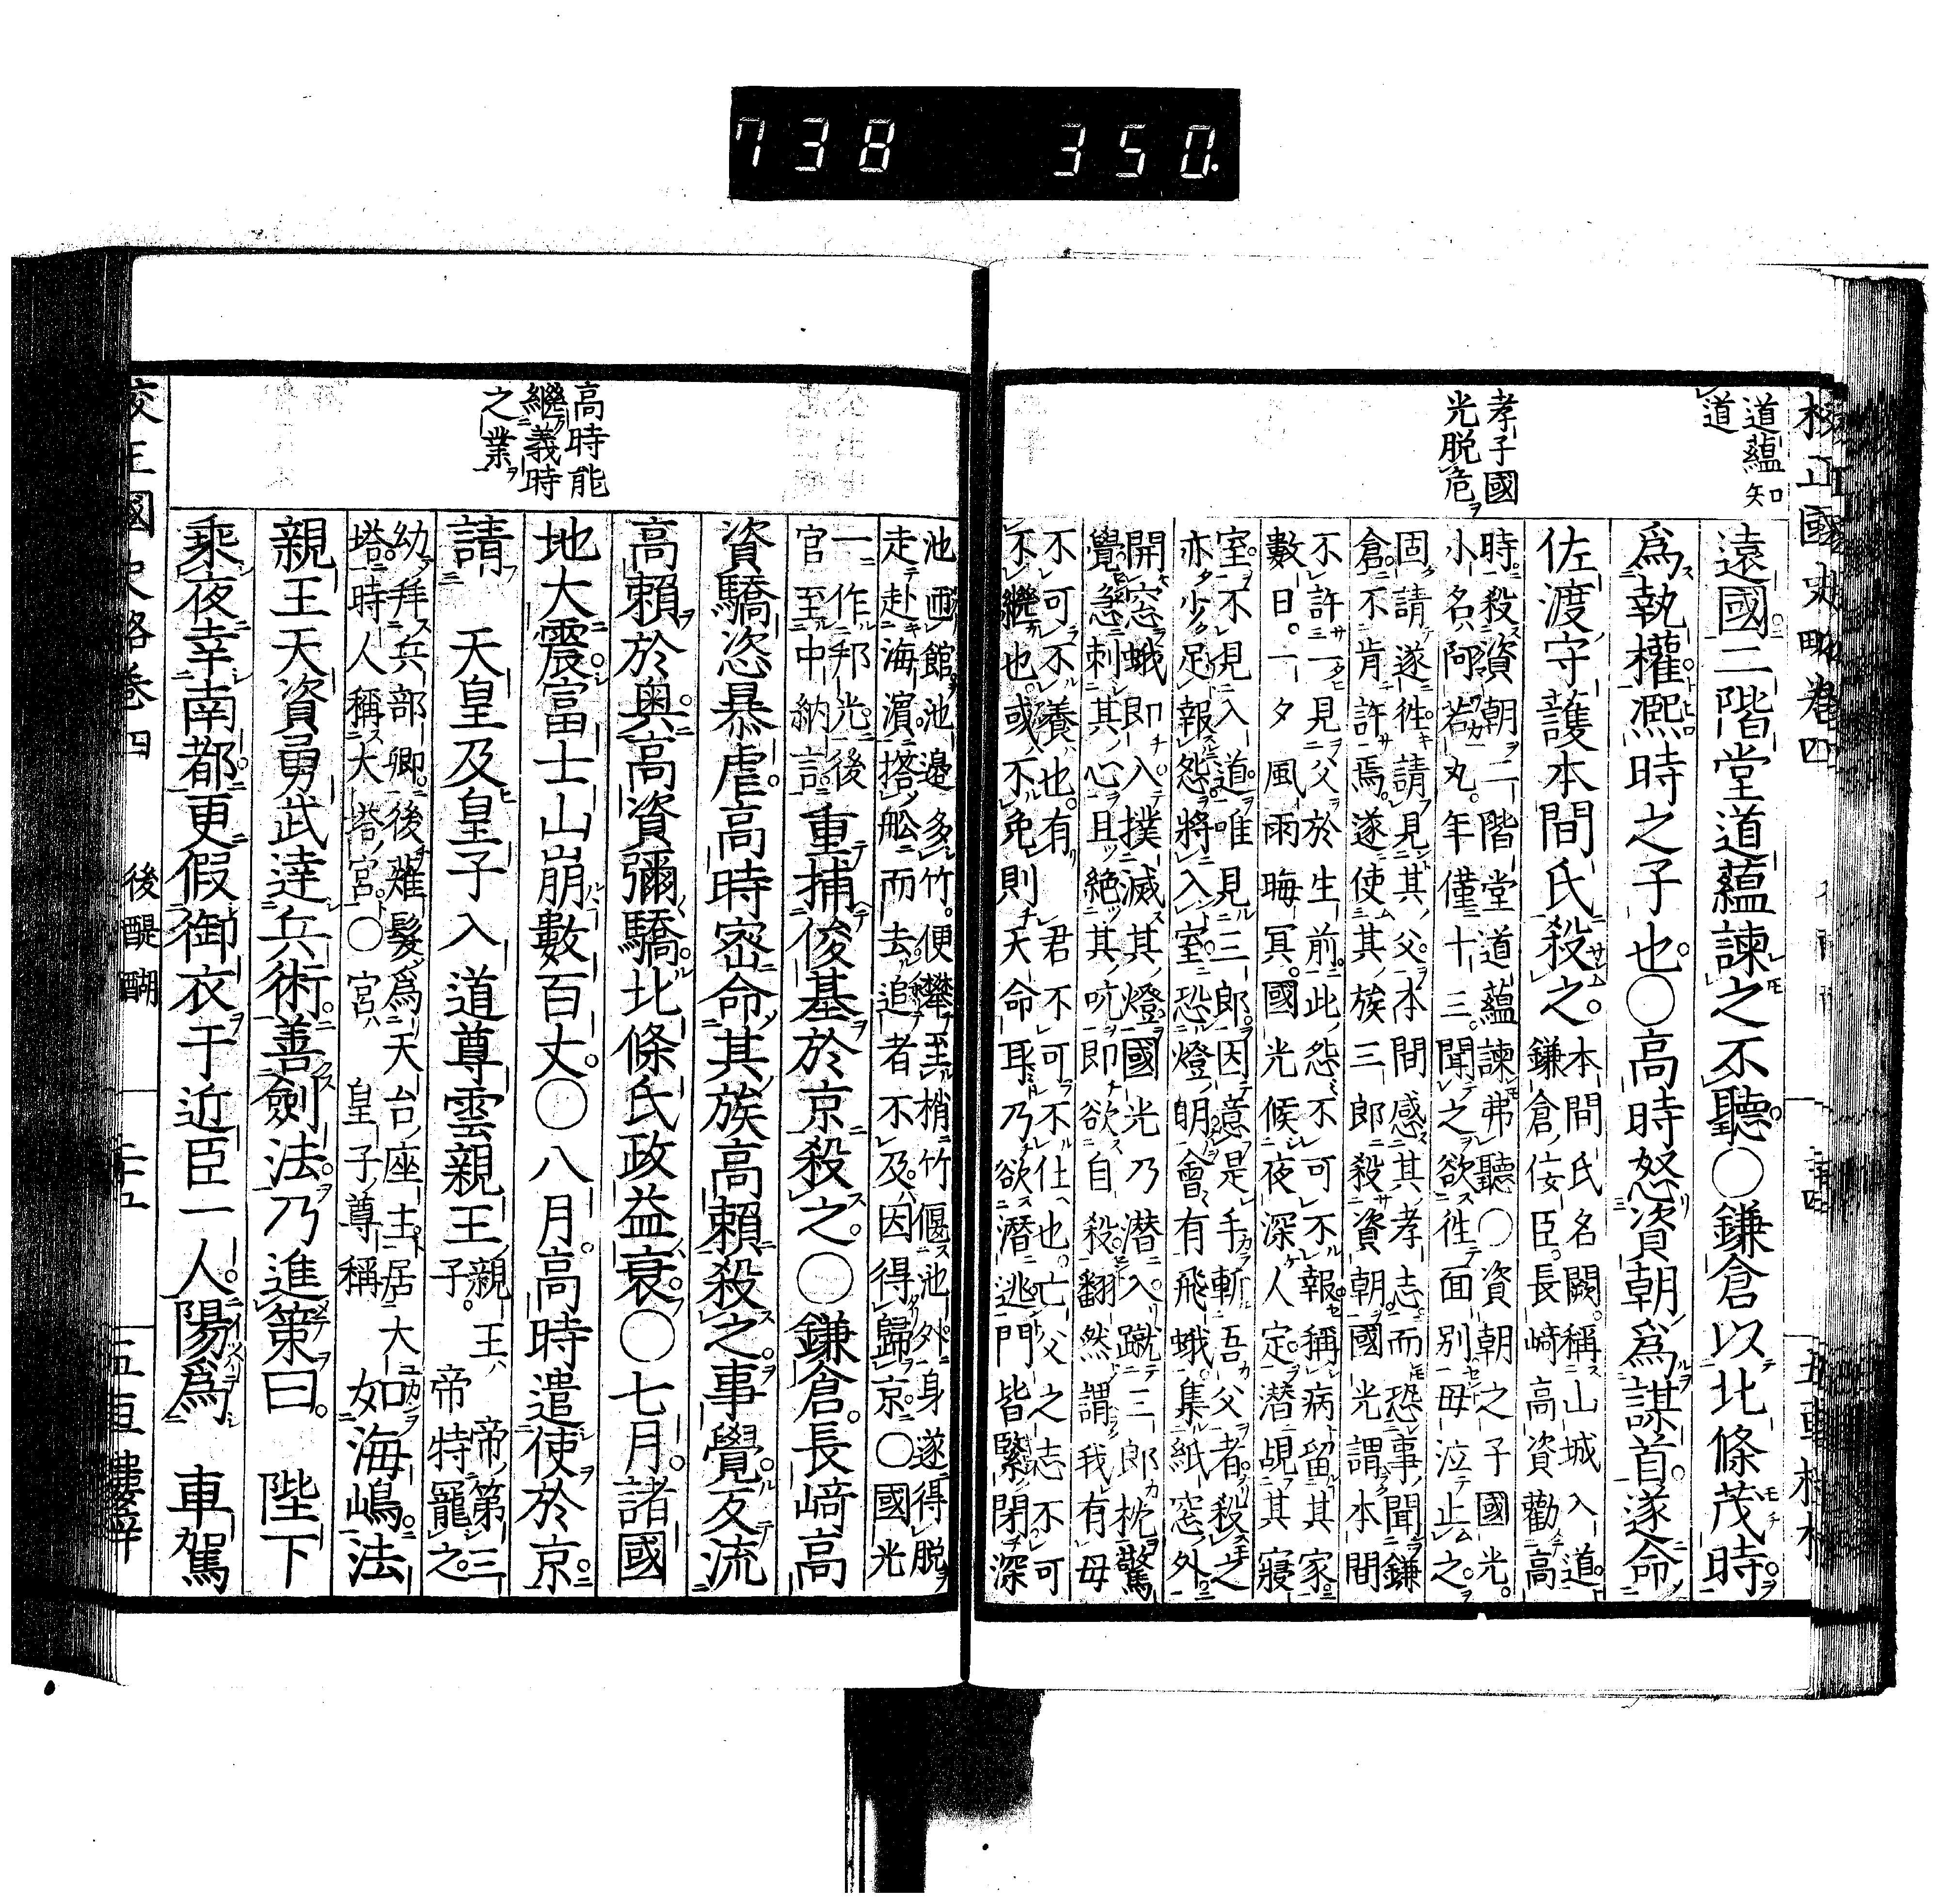 738 350
校正國史略卷四
道蘊知
道
孝子國
光脱危
遠國二階堂道蘊諫之不聽○鎌倉以北條茂時
爲執權熈時之子也○高時怒資朝爲謀首遂命
佐渡守護本間氏殺之
本間氏名闕稱山城入道
鎌倉佞臣長崎高資勸高
時殺資朝二階堂道蘊諫弗聽○資朝之子國光
小名阿若丸年僅十三聞之欲徃面別母泣止之
固請遂徃請見其父本間感其孝志而恐事聞鎌
倉不肯許焉遂使其族三郎殺資朝國光謂本間
不許一見父於生前此怨不可不報稱病留其家
數日一夕風雨晦冥國光候夜深人定潜覘其寢
室不見入道唯見三郎因意是手斬吾父者殺之
亦少足報怨將入室恐燈明會有飛蛾集紙窓外
開窓蛾即入撲滅其燈國光乃潜入蹴三郎枕驚
覺急刺其心且絶其吭即欲自殺翻然謂我有母
不可不養也有君不可不仕也亡父之志不可
不繼也或不免則天命耳乃欲潜逃門皆緊閉深
池匝館池邊多竹便攀至梢竹偃池外身遂得脱
走赴海濵搭舩而去追者不及因得歸京○國光
一作邦光後
官至中納言
重捕俊基於京殺之○鎌倉長﨑高
資驕恣暴虐高時密命其族高頼殺之事覺反流
高頼於奥高資彌驕北條氏政益衰○七月諸國
地大震富士山崩數百丈○八月高時遣使於京
請 天皇及皇子入道尊雲親王
親王帝第三
子帝特寵之
幼拜兵部卿後薙髪爲天台座主居大
塔時人稱大塔宮○宮皇子尊稱
如海嶋法
親王天資勇武達兵術善劍法乃進策曰 陛下
乘夜幸南都更假御衣于近臣一人陽爲 車駕
高時能
繼義時
之業
後醍醐
五車樓梓